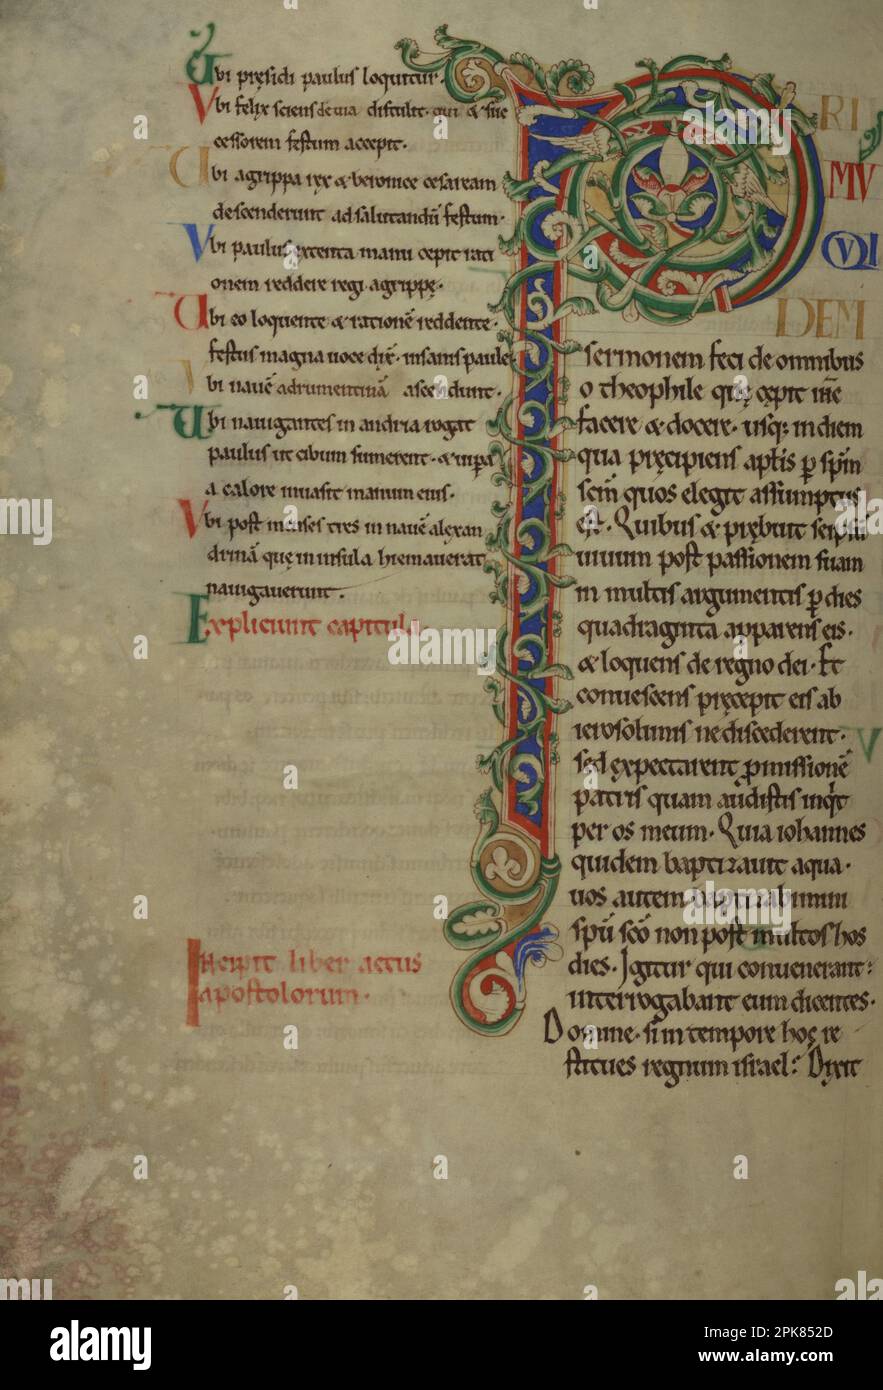 Vbi pręsidi paulus loquitur.
Vbi felix sciens de uia distulit. qui & suc
cessorem festum accepit.
Vbi agrippa rex & beronice cesaream
descenderunt ad salutandū festum.
Vbi paulus extenta manu cepit rati
onem reddere regi agrippę.
Vbi eo loquente & rationē reddente.
festus magna uoce dix̄. insanis paule
Vbi nauē adrumentinā ascendunt.
Vbi nauigantes in andria rogat
paulus ut cibum sumerent. &
a calore inuasit manum eius.
Vbi post menses tres in nauē alexan
drinā quę in insula hiemauerat
nauigauerunt.
Expliciunt capitula.
Incipit liber actus
apostolorum.
PRI
MV
QVI
DEM
sermonem feci de omnibus
o theophile quę cępit ihc
facere & docere. usq; in diem
qua pręcipiens aptis p spm
scm quos elegit assumptus
est. Quibus & prębuit seipsū
uiuum post passionem suam
in multis argumentis p dies
quadraginta apparens eis.
& loquens de regno dei. Et
conuescens pręcepit eis ab
ierosolimis ne discederent.
sed expectarent pmissionē
patris quam audistis inqt
per os meum. Quia iohannes
quidem baptizauit aqua.
uos autem baptizabimini
spū scō non post multos hos
dies. Igitur qui conuenerant:
interrogabant eum dicentes.
Domine. si in tempore hoc re
stitues regnum israel? Dixit
alamy
Image ID: 2PK852D
www.alamy.com